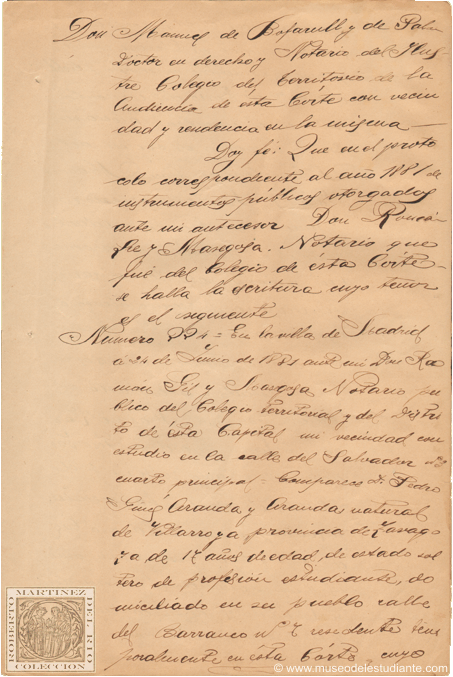 Don Manuel de Bofarull y de Palau
Doctor en derecho y Notario del Ilus
tre Colegio del territorio de la
Audiencia de ésta Córte con vecin
dad y residencia en la misma
Doy fé: Que en el proto
colo correspondiente al año 1881 de
instrumentos públicos otorgados
ante mi antecesor Don Ramón
y Masegosa. Notario que
fué del Colegio de ésta Córte
se halla la escritura cuyo tenor
es el siguiente
Número = En la villa de Madrid
á 24 de Junio de 1881 ante mi Don Ra
món Gil y Masegosa Notario pu
blico del Colegio territorial y del Distri
to de ésta Capital mi vecindad con
estudio en la calle del Salvador
cuarto principal = Comparece Dn. Pedro
Ginés Aranda y Aranda natural
de Villarroya provincia de Zarago
za de años de edad, de estado sol
tero de profesion estudiante, do
miciliado en su pueblo calle
del Barranco nº 7 residente tem
poralmente en esta Córte cuyo
ROBERTO MARTINEZ DEL RIO
COLECCION
© www.museodelestudiante.com